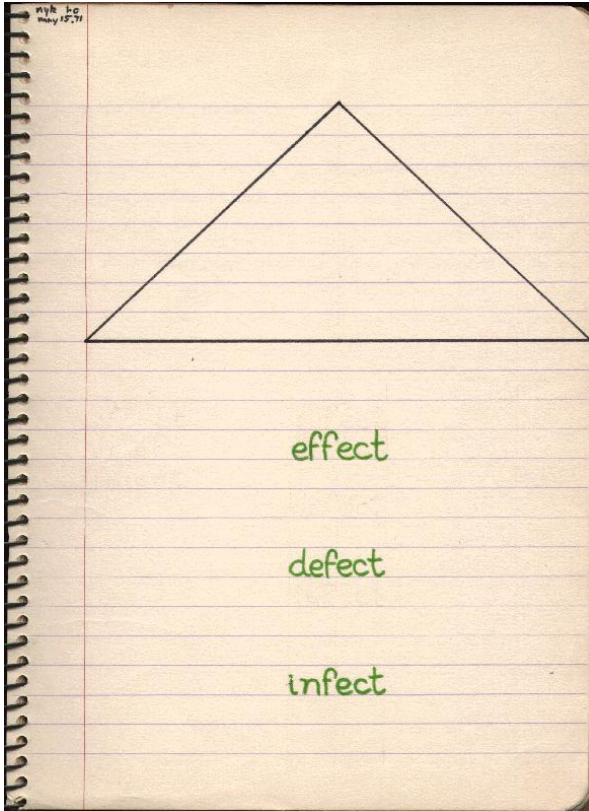 may 15.71
effect
defect
infect